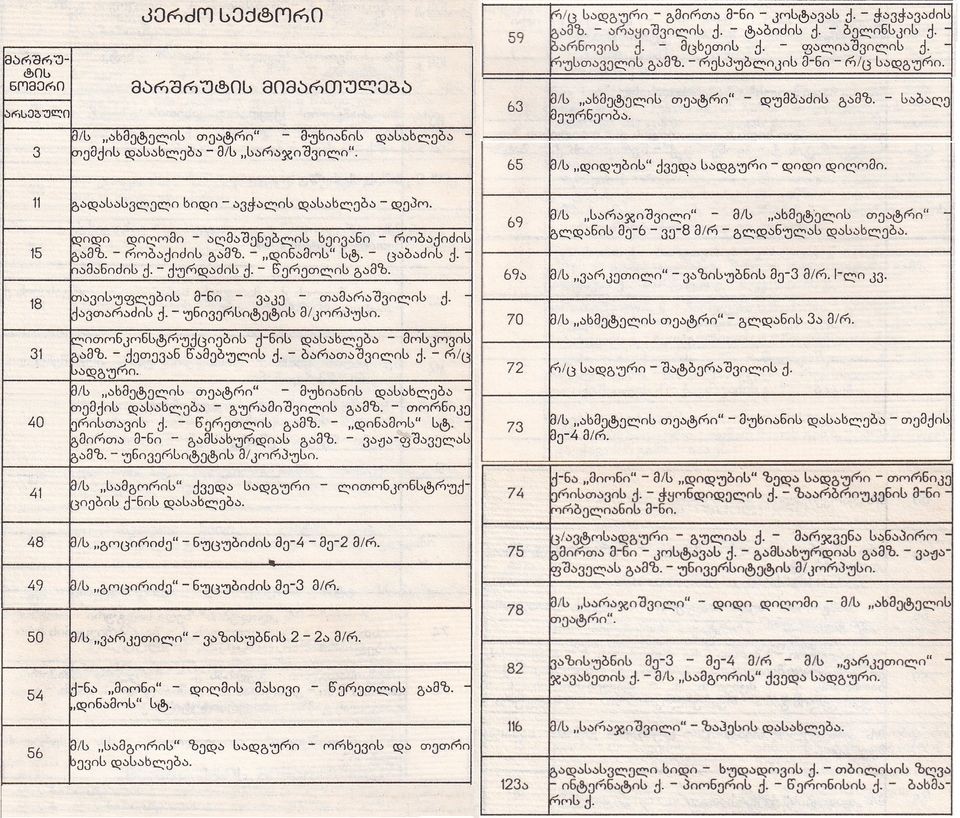 კერძო სექტორი
მარშრუ-
ტის
ნომერი
მარშრუტის მიმართულება
არსებული
3
მ/ს „ახმეტელის თეატრი“ – მუხიანის დასახლება –
თემქის დასახლება – მ/ს „სარაჯიშვილი“.
11
გადასასვლელი ხიდი – ავჭალის დასახლება – დეპო.
15
დიდი დიღომი – აღმაშენებლის ხეივანი – რობაქიძის
გამზ. – რობაქიძის გამზ. – „დინამოს“ სტ. – ცაბაძის ქ. –
იამანიძის ქ. – ქურდაძის ქ. – წერეთლის გამზ.
18
თავისუფლების მ-ნი – ვაკე – თამარაშვილის ქ. –
ქავთარაძის ქ. – უნივერსიტეტის მ/კორპუსი.
31
ლითონკონსტრუქციების ქ-ნის დასახლება – მოსკოვის
გამზ. – ქეთევან წამებულის ქ. – ბარათაშვილის ქ. – რ/ც
სადგური.
40
მ/ს „ახმეტელის თეატრი“ – მუხიანის დასახლება –
თემქის დასახლება – გურამიშვილის გამზ. – თორნიკე
ერისთავის ქ. – წერეთლის გამზ. – „დინამოს“ სტ. –
გმირთა მ-ნი – გამსახურდიას გამზ. – ვაჟა-ფშაველას
გამზ. – უნივერსიტეტის მ/კორპუსი.
41
მ/ს „სამგორის“ ქვედა სადგური – ლითონკონსტრუქ-
ციების ქ-ნის დასახლება.
48
მ/ს „გოცირიძე“ – ნუცუბიძის მე-4 – მე-2 მ/რ.
49
მ/ს „გოცირიძე“ – ნუცუბიძის მე-3 მ/რ.
50
მ/ს „ვარკეთილი“ – ვაზისუბნის 2 – 2ა მ/რ.
54
ქ-ნა „მიონი“ – დიღმის მასივი – წერეთლის გამზ. –
„დინამოს“ სტ.
56
მ/ს „სამგორის“ ზედა სადგური – ორხევის და თეთრი
ხევის დასახლება.
59
რ/ც სადგური – გმირთა მ-ნი – კოსტავას ქ. – ჭავჭავაძის
გამზ. – არაყიშვილის ქ. – ტაბიძის ქ. – ბელინსკის ქ. –
ბარნოვის ქ. – მცხეთის ქ. – ფალიაშვილის ქ. –
რუსთაველის გამზ. – რესპუბლიკის მ-ნი – რ/ც სადგური.
63
მ/ს „ახმეტელის თეატრი“ – დუმბაძის გამზ. – საბაღე
მეურნეობა.
65
მ/ს „დიდუბის“ ქვედა სადგური – დიდი დიღომი.
69
მ/ს „სარაჯიშვილი“ – მ/ს „ახმეტელის თეატრი“ –
გლდანის მე-6 – ვე-8 მ/რ – გლდანულას დასახლება.
69ა
მ/ს „ვარკეთილი“ – ვაზისუბნის მე-3 მ/რ. I-ლი კვ.
70
მ/ს „ახმეტელის თეატრი“ – გლდანის 3ა მ/რ.
72
რ/ც სადგური – შატბერაშვილის ქ.
73
მ/ს „ახმეტელის თეატრი“ – მუხიანის დასახლება – თემქის
მე-4 მ/რ.
74
ქ-ნა „მიონი“ – მ/ს „დიდუბის“ ზედა სადგური – თორნიკე
ერისთავის ქ. – ჭყონდიდელის ქ. – ზაარბრიუკენის მ-ნი –
ორბელიანის მ-ნი.
75
ც/ავტოსადგური – გულიას ქ. – მარჯვენა სანაპირო –
გმირთა მ-ნი – კოსტავას ქ. – გამსახურდიას გამზ. – ვაჟა-
ფშაველას გამზ. – უნივერსიტეტის მ/კორპუსი.
78
მ/ს „სარაჯიშვილი“ – დიდი დიღომი – მ/ს „ახმეტელის
თეატრი“.
82
ვაზისუბნის მე-3 – მე-4 მ/რ – მ/ს „ვარკეთილი“ –
ჯავახეთის ქ. – მ/ს „სამგორის“ ქვედა სადგური.
116
მ/ს „სარაჯიშვილი“ – ზაჰესის დასახლება.
123ა
გადასასვლელი ხიდი – ხუდადოვის ქ. – თბილისის ზღვა
– ინტერნატის ქ. – პიონერის ქ. – წერონისის ქ. – ბახმა-
როს ქ.